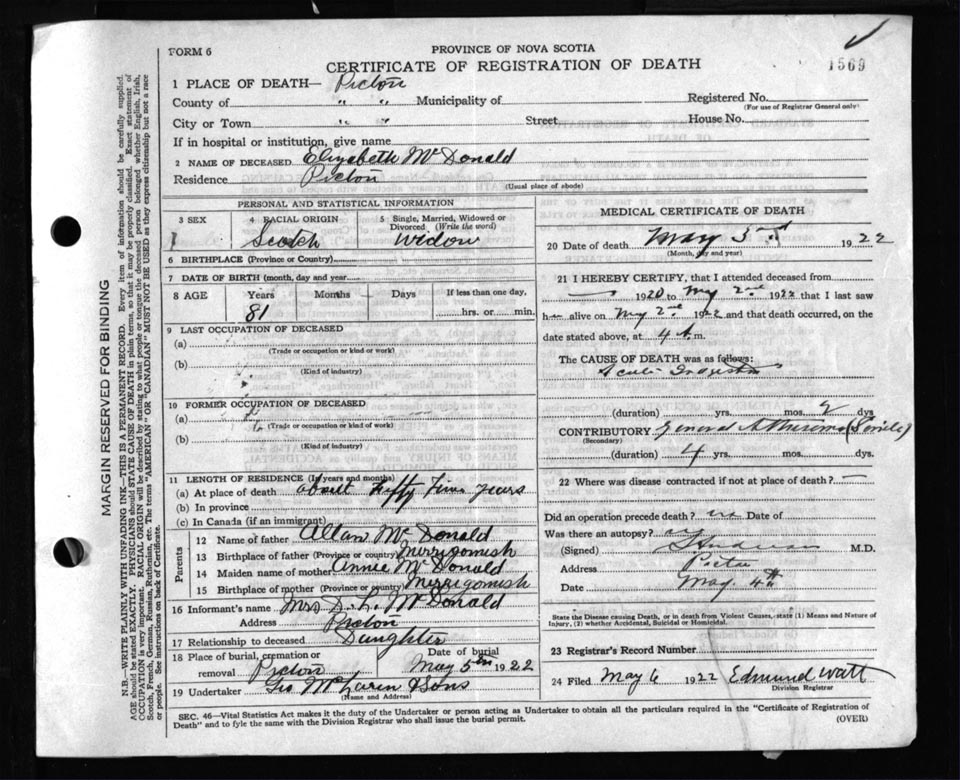 FORM 6
PROVINCE OF NOVA SCOTIA
CERTIFICATE OF REGISTRATION OF DEATH
1569
1 PLACE OF DEATH— Pictou
County of " " Municipality of
Registered No.
(For use of Registrar General only)
City or Town " " Street House No.
If in hospital or institution, give name
2 NAME OF DECEASED Elizabeth McDonald
Residence Pictou
(Usual place of abode)
PERSONAL AND STATISTICAL INFORMATION
3 SEX
4 RACIAL ORIGIN
Scotch
5 Single, Married, Widowed or Divorced (Write the word)
Widow
6 BIRTHPLACE (Province or Country)
7 DATE OF BIRTH (month, day and year)
8 AGE Years Months Days If less than one day,
81 hrs. or min.
9 LAST OCCUPATION OF DECEASED
(a)
(Trade or occupation or kind or work)
(b)
(Kind of industry)
10 FORMER OCCUPATION OF DECEASED
(a)
(Trade or occupation or kind of work)
(b)
(Kind of industry)
11 LENGTH OF RESIDENCE (In years and months)
(a) At place of death about Fifty Five years
(b) In province
(c) In Canada (if an immigrant)
Parents
12 Name of father Allan McDonald
13 Birthplace of father (Province or country) Merrigomish
14 Maiden name of mother Annie McDonald
15 Birthplace of mother (Province or country) Merrigomish
16 Informant's name Mrs D. L. McDonald
Address Pictou
17 Relationship to deceased Daughter
18 Place of burial, cremation or removal Pictou
Date of burial May 5th 1922
19 Undertaker Geo McLaren & Sons
(Name and Address)
MEDICAL CERTIFICATE OF DEATH
20 Date of death May 3rd 1922
(Month, day and year)
21 I HEREBY CERTIFY, that I attended deceased from
1920 to My 2nd 1922 that I last saw
h alive on My 2nd 1922 and that death occurred, on the
date stated above, at 4 A.m.
The CAUSE OF DEATH was as follows:
Acute
(duration) yrs. mos. 2 dys.
CONTRIBUTORY General (Senile)
(Secondary)
(duration) 4 yrs. mos. dys.
22 Where was disease contracted if not at place of death? —
Did an operation precede death? no Date of
Was there an autopsy?
(Signed) M.D.
Address Pictou
Date May 4th
State the Disease causing Death, or in death from Violent Causes, state (1) Means and Nature of Injury, (2) whether Accidental, Suicidal or Homicidal.
23 Registrar's Record Number
24 Filed May 6 1922 Edmund Watt
Division Registrar
SEC. 46—Vital Statistics Act makes it the duty of the Undertaker or person acting as Undertaker to obtain all the particulars required in the "Certificate of Registration of
Death" and to fyle the same with the Division Registrar who shall issue the burial permit.
(OVER)
MARGIN RESERVED FOR BINDING
N.B.—WRITE PLAINLY WITH UNFADING INK—THIS IS A PERMANENT RECORD. Every item of information should be carefully supplied.
AGE should be stated EXACTLY. PHYSICIANS should STATE CAUSE OF DEATH in plain terms, so that it may be properly classified. Exact statement of
OCCUPATION is very important. RACIAL ORIGIN will be described by stating to what people or tongue the deceased person belonged, whether English, Irish,
Scotch, French, German, Russian, Ruthenian, etc. The terms "AMERICAN" OR "CANADIAN" MUST NOT BE USED as they express citizenship but not a race
or people. See instructions on back of Certificate.